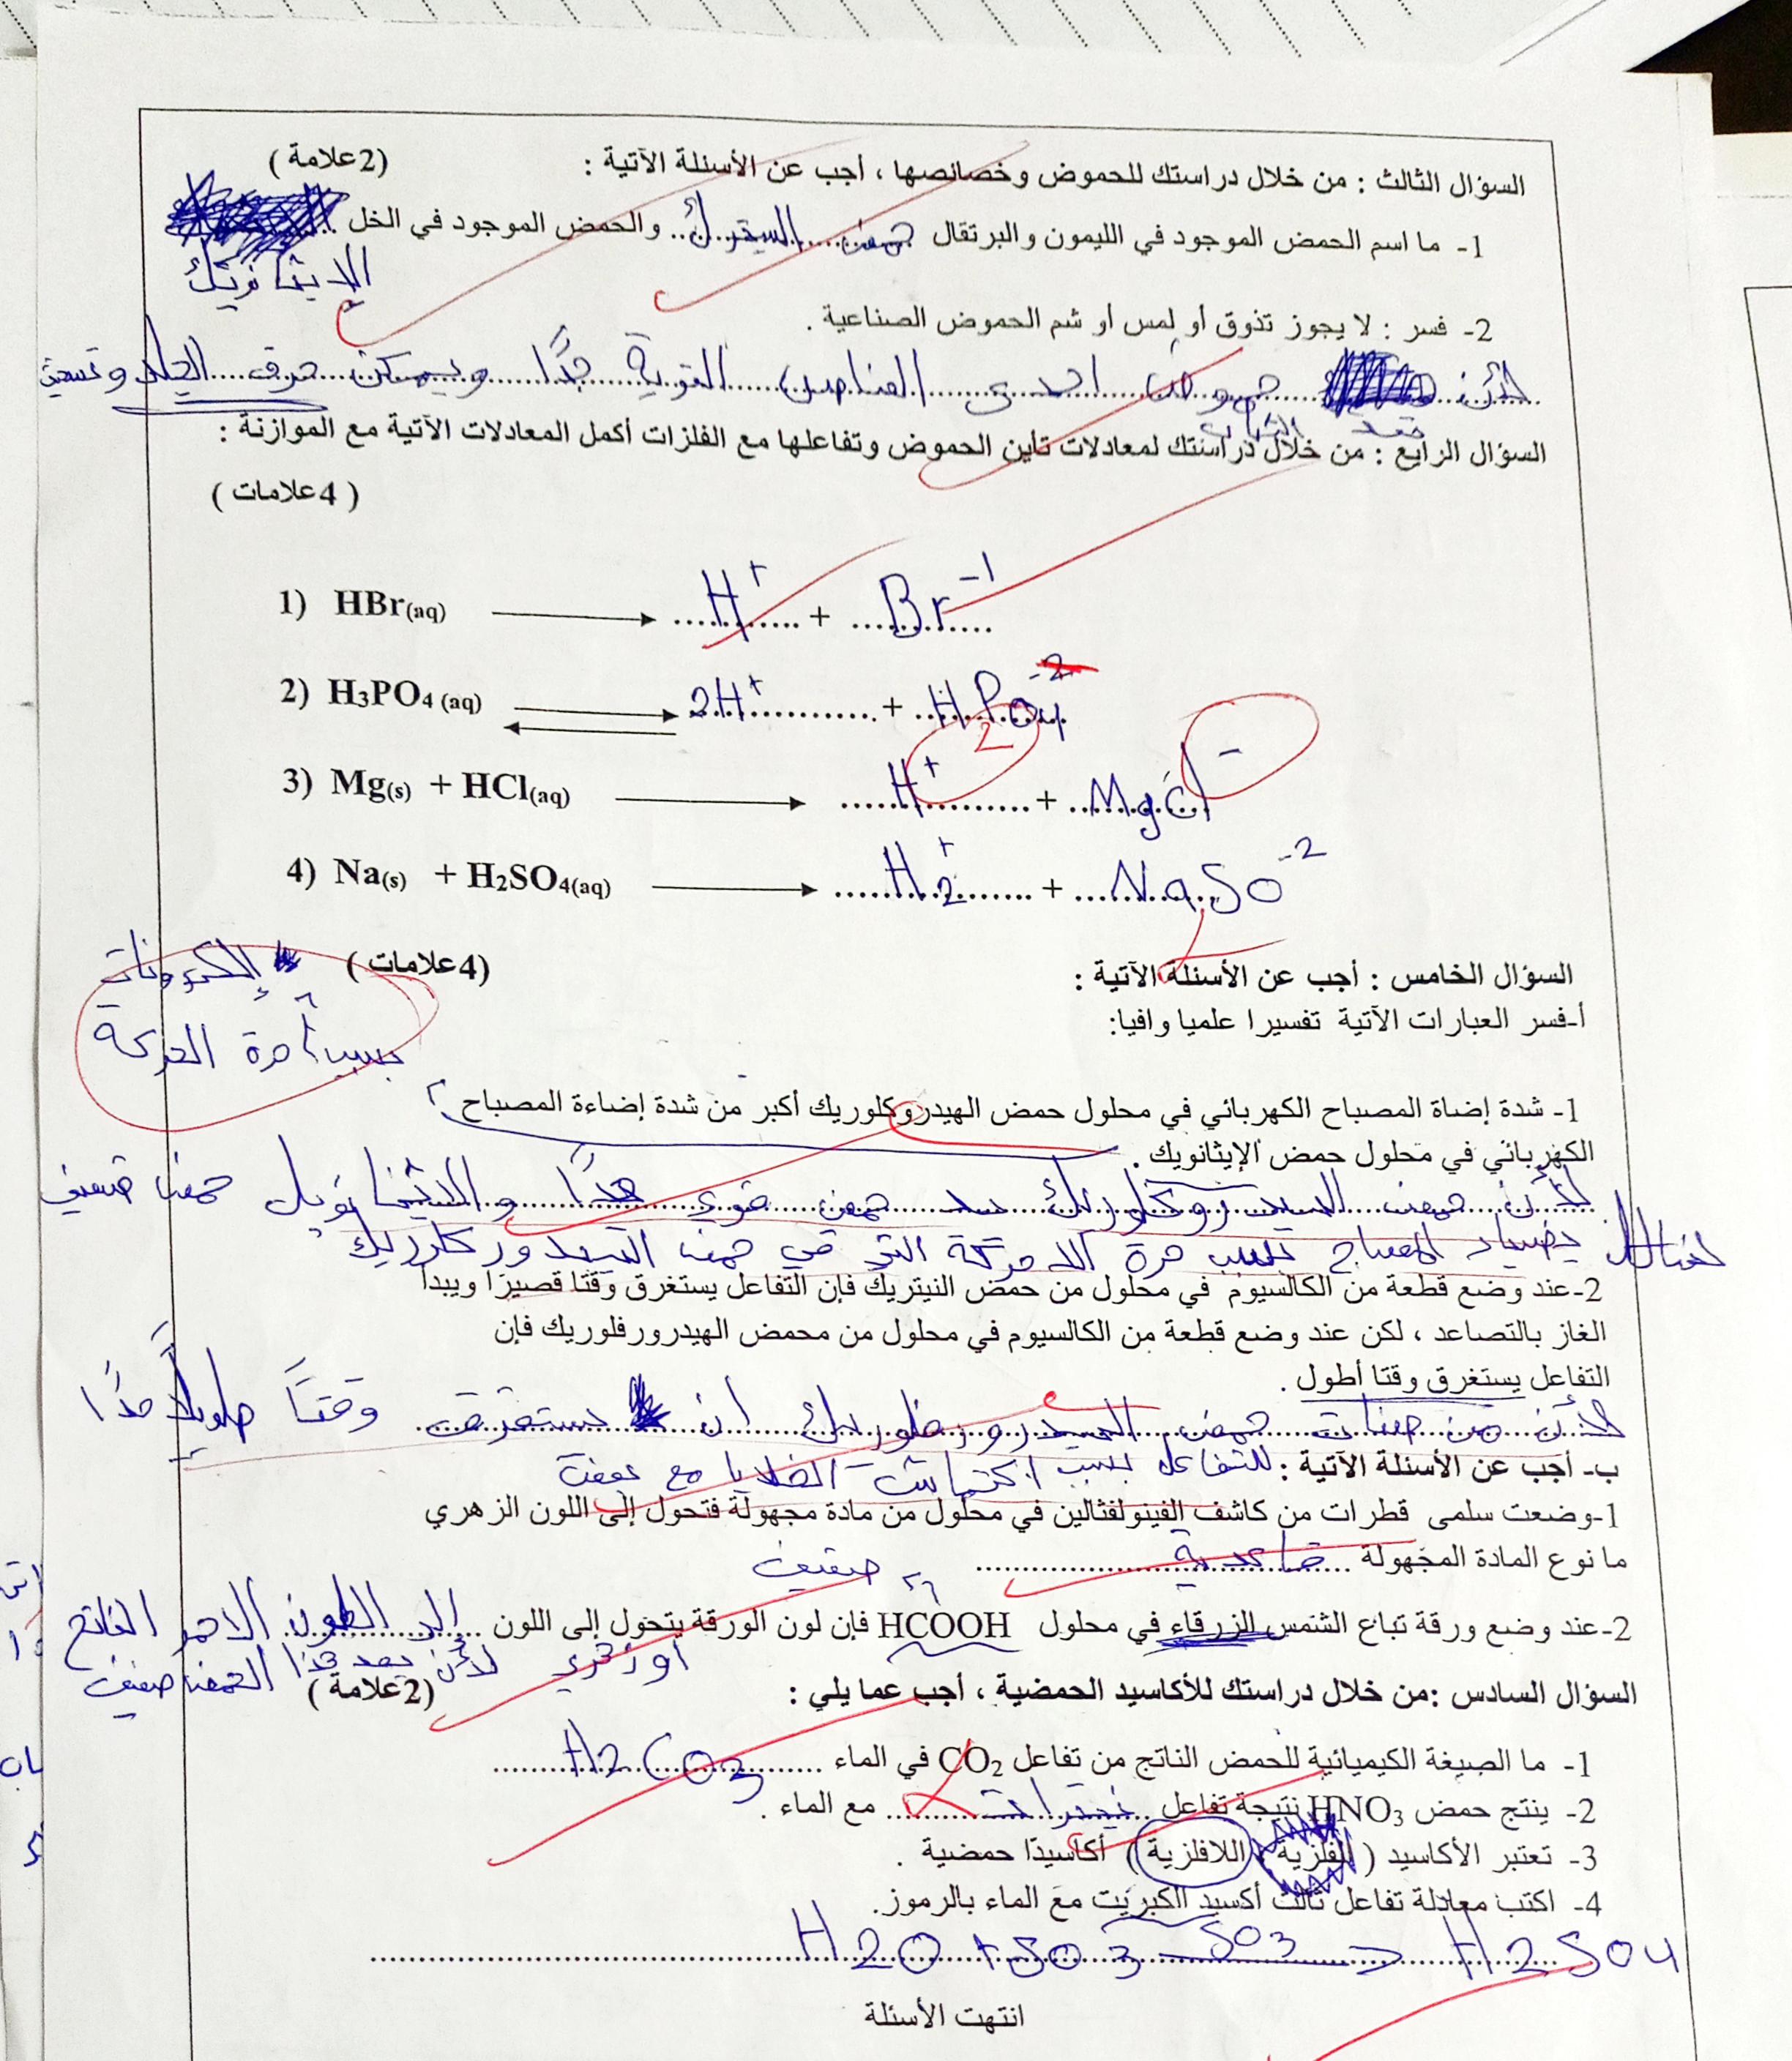 السؤال الثالث : من خلال دراستك للحموض وخصائصها ، أجب عن الأسئلة الآتية : (2علامة )
1- ما اسم الحمض الموجود في الليمون والبرتقال حمض السيتريك والحمض الموجود في الخل
الإيثانويك
2- فسر : لا يجوز تذوق أو لمس أو شم الحموض الصناعية .
لأن حموض احدى العناصر القوية جدًا ويمكن حرق الجلد
السؤال الرابع : من خلال دراستك لمعادلات تأين الحموض وتفاعلها مع الفلزات أكمل المعادلات الآتية مع الموازنة :
( 4علامات )
1) HBr(aq) → H+ + Br-1
2) H3PO4 (aq) ⇄ 2H+ + HPO4-2
2
3) Mg(s) + HCl(aq) → H+ + MgCl-
4) Na(s) + H2SO4(aq) → H2+ + NaSO-2
السؤال الخامس : أجب عن الأسئلة الآتية : (4علامات )
إلكترونات
أ-فسر العبارات الآتية تفسيرا علميا وافيا:
بسبب حرة الحركة
1- شدة إضاة المصباح الكهربائي في محلول حمض الهيدروكلوريك أكبر من شدة إضاءة المصباح
الكهربائي في محلول حمض الإيثانويك .
لأن حمض الهيدروكلوريك حمض قوي جدًا حمض ضعيف
المصباح بسبب حرة الحركة التي في حمض الهيدروكلوريك
2-عند وضع قطعة من الكالسيوم في محلول من حمض النيتريك فإن التفاعل يستغرق وقتا قصيرا ويبدأ
الغاز بالتصاعد ، لكن عند وضع قطعة من الكالسيوم في محلول من محمض الهيدرورفلوريك فإن
التفاعل يستغرق وقتا أطول .
لأن من صفات حمض الهيدروفلوريك ان يستغرق وقتًا طويلًا جدًا
ب- أجب عن الأسئلة الآتية : للتفاعل بسبب مع
1-وضعت سلمى قطرات من كاشف الفينولفثالين في محلول من مادة مجهولة فتحول إلى اللون الزهري
ما نوع المادة المجهولة قاعدية
ضعيف
2-عند وضع ورقة تباع الشمس الزرقاء في محلول HCOOH فإن لون الورقة يتحول إلى اللون الاحمر الفاتح
او زهري لأن يعد هذا الحمض ضعيف
السؤال السادس :من خلال دراستك للأكاسيد الحمضية ، أجب عما يلي : (2علامة )
1- ما الصيغة الكيميائية للحمض الناتج من تفاعل CO2 في الماء H2CO3
2- ينتج حمض HNO3 نتيجة تفاعل نيترات مع الماء .
3- تعتبر الأكاسيد ( الفلزية ، اللافلزية ) أكاسيدا حمضية .
4- اكتب معادلة تفاعل ثالث أكسيد الكبريت مع الماء بالرموز.
H2O + SO3 SO3 → H2SO4
انتهت الأسئلة